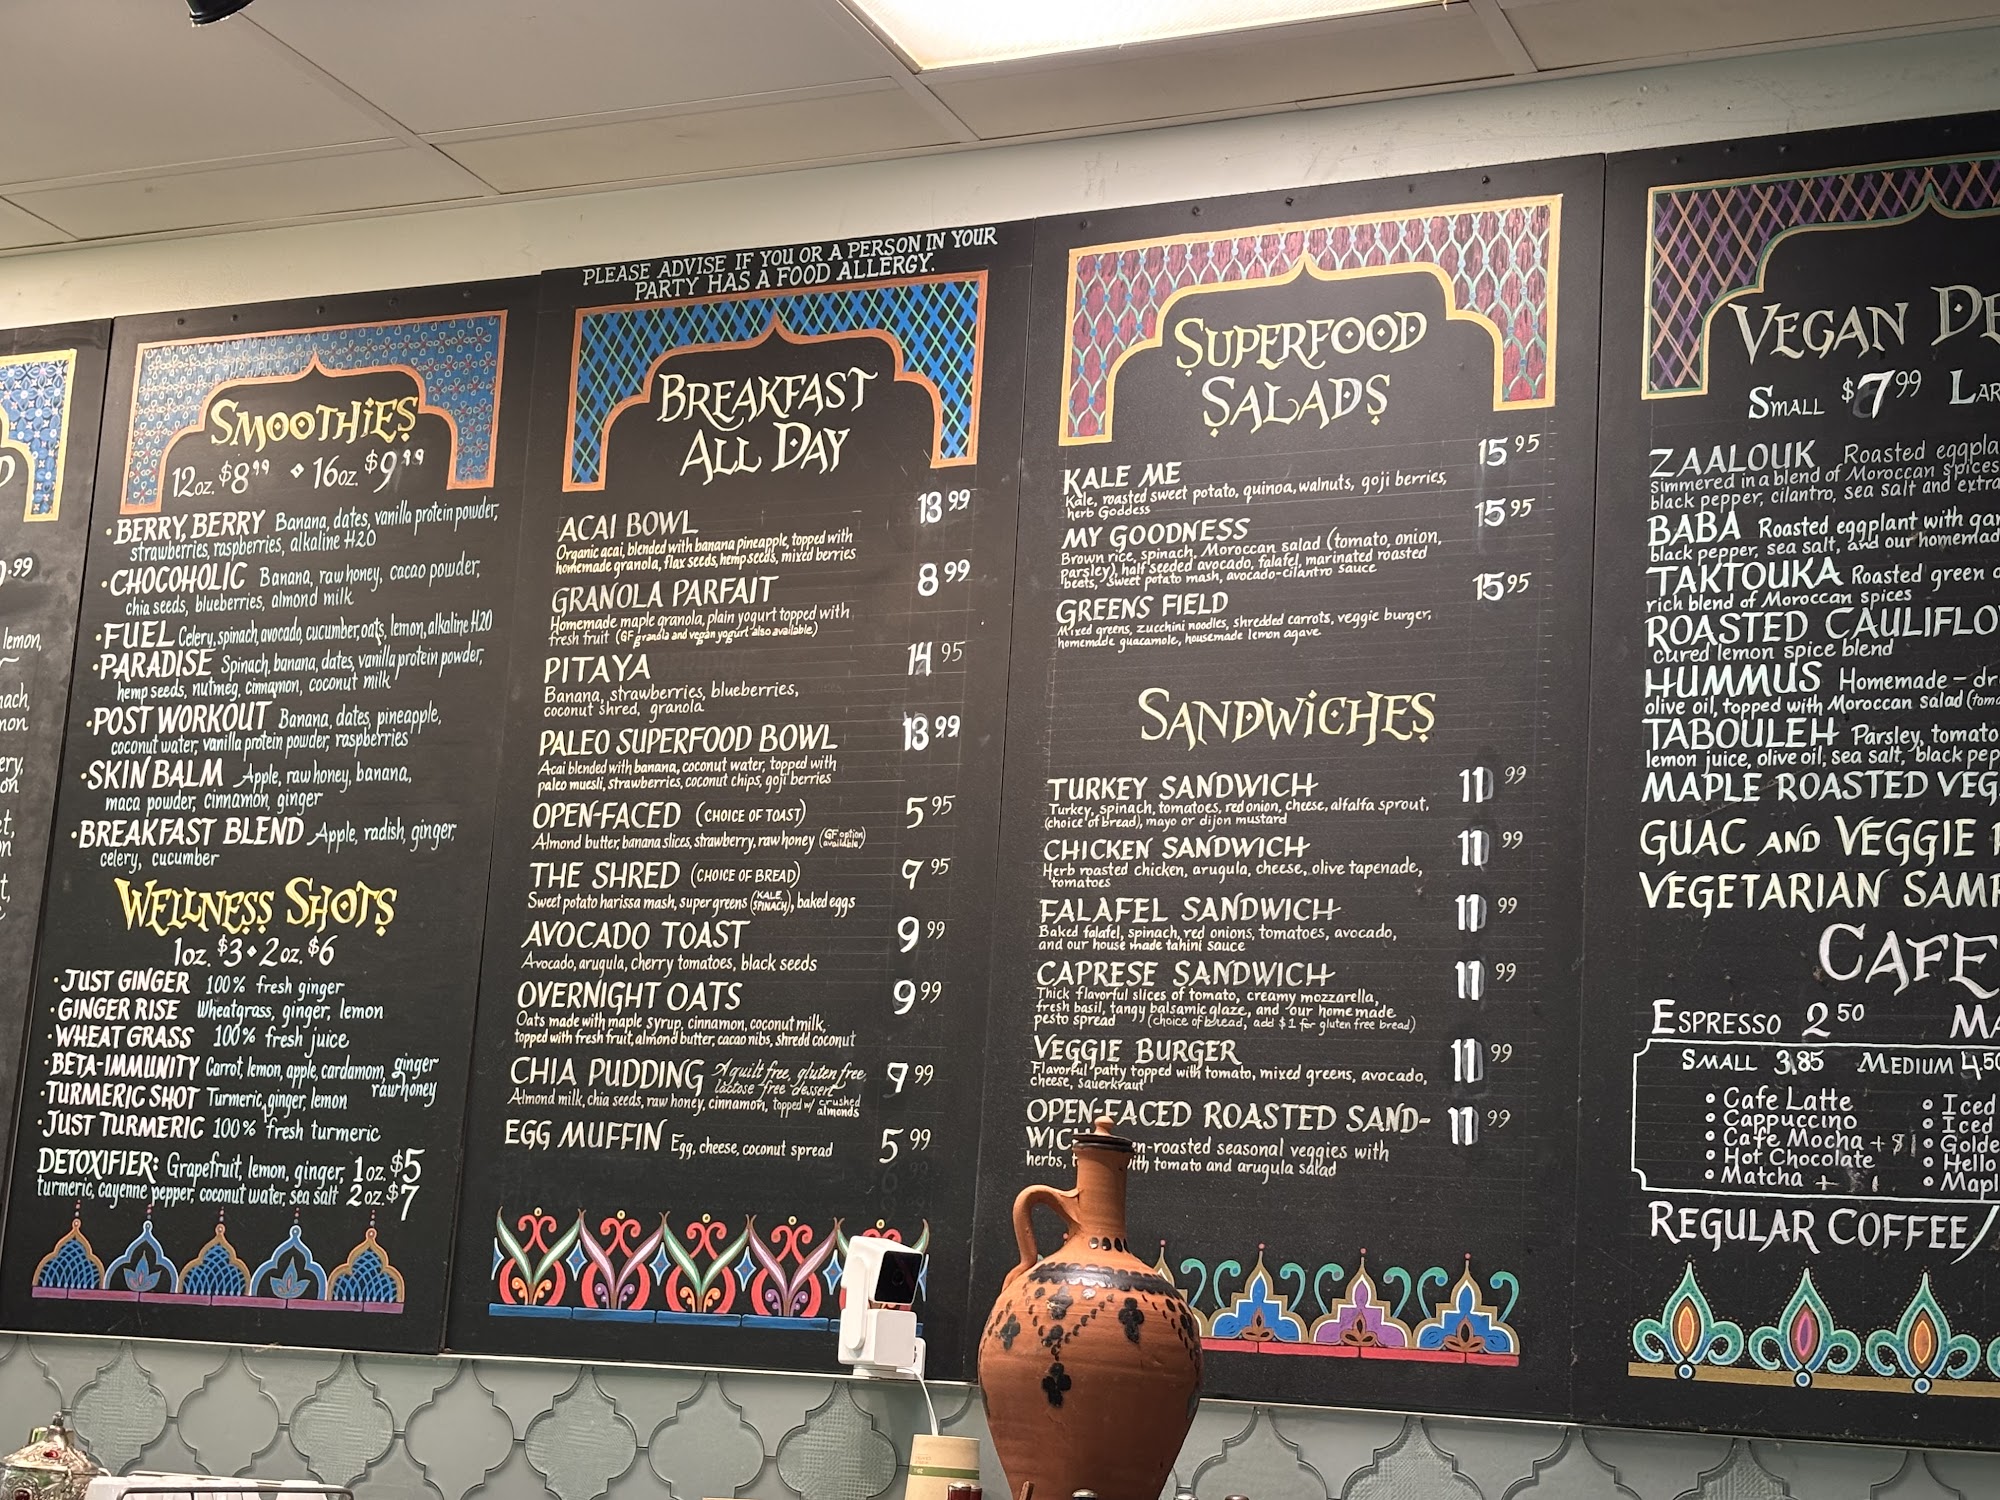 9.99
lemon,
SMOOTHiES
12oz. $8.99 • 16oz. $9.99
•BERRY, BERRY Banana, dates, vanilla protein powder,
strawberries, raspberries, alkaline H20
•CHOCOHOLIC Banana, raw honey, cacao powder,
chia seeds, blueberries, almond milk
•FUEL Celery, spinach, avocado, cucumber, oats, lemon, alkaline H20
•PARADISE Spinach, banana, dates, vanilla protein powder,
hemp seeds, nutmeg, cinnamon, coconut milk
•POST WORKOUT Banana, dates, pineapple,
coconut water, vanilla protein powder, raspberries
•SKIN BALM Apple, raw honey, banana,
maca powder, cinnamon, ginger
•BREAKFAST BLEND Apple, radish, ginger,
celery, cucumber
WELLNESS SHOTS
1oz. $3 • 2oz. $6
•JUST GINGER 100% fresh ginger
•GINGER RISE Wheatgrass, ginger, lemon
•WHEAT GRASS 100% fresh juice
•BETA-IMMUNITY Carrot, lemon, apple, cardamom, ginger
raw honey
•TURMERIC SHOT Turmeric, ginger, lemon
•JUST TURMERIC 100% fresh turmeric
DETOXIFIER: Grapefruit, lemon, ginger, 1oz. $5
turmeric, cayenne pepper, coconut water, sea salt 2oz. $7
PLEASE ADVISE IF YOU OR A PERSON IN YOUR
PARTY HAS A FOOD ALLERGY.
BREAKFAST
ALL DAY
ACAI BOWL 13.99
Organic acai, blended with banana pineapple, topped with
homemade granola, flax seeds, hemp seeds, mixed berries
GRANOLA PARFAIT 8.99
Homemade maple granola, plain yogurt topped with
fresh fruit (GF granola and vegan yogurt also available)
PITAYA 14.95
Banana, strawberries, blueberries,
coconut shred, granola
PALEO SUPERFOOD BOWL 13.99
Acai blended with banana, coconut water, topped with
paleo muesli, strawberries, coconut chips, goji berries
OPEN-FACED (CHOICE OF TOAST) 5.95
Almond butter, banana slices, strawberry, raw honey (GF option available)
THE SHRED (CHOICE OF BREAD) 9.95
Sweet potato harissa mash, super greens (KALE, SPINACH), baked eggs
AVOCADO TOAST 9.99
Avocado, arugula, cherry tomatoes, black seeds
OVERNIGHT OATS 9.99
Oats made with maple syrup, cinnamon, coconut milk,
topped with fresh fruit, almond butter, cacao nibs, shredd coconut
CHIA PUDDING A guilt free, gluten free, lactose free dessert 9.99
Almond milk, chia seeds, raw honey, cinnamon, topped w/ crushed almonds
EGG MUFFIN Egg, cheese, coconut spread 5.99
SUPERFOOD
SALADS
KALE ME 15.95
Kale, roasted sweet potato, quinoa, walnuts, goji berries,
herb Goddess
MY GOODNESS 15.95
Brown rice, spinach, Moroccan salad (tomato, onion,
parsley), half seeded avocado, falafel, marinated roasted
beets, sweet potato mash, avocado-cilantro sauce
GREENS FIELD 15.95
Mixed greens, zucchini noodles, shredded carrots, veggie burger,
homemade guacamole, housemade lemon agave
SANDWiCHES
TURKEY SANDWICH 11.99
Turkey, spinach, tomatoes, red onion, cheese, alfalfa sprout,
(choice of bread), mayo or dijon mustard
CHICKEN SANDWICH 11.99
Herb roasted chicken, arugula, cheese, olive tapenade,
tomatoes
FALAFEL SANDWICH 11.99
Baked falafel, spinach, red onions, tomatoes, avocado,
and our house made tahini sauce
CAPRESE SANDWICH 11.99
Thick flavorful slices of tomato, creamy mozzarella,
fresh basil, tangy balsamic glaze, and our homemade
pesto spread (choice of bread, add $1 for gluten free bread)
VEGGIE BURGER 11.99
Flavorful patty topped with tomato, mixed greens, avocado,
cheese, sauerkraut
OPEN-FACED ROASTED SAND- 11.99
roasted seasonal veggies with
herbs, with tomato and arugula salad
VEGAN
SMALL $7.99
ZAALOUK Roasted
simmered in a blend of Moroccan spices
black pepper, cilantro, sea salt and extra
BABA Roasted eggplant with
black pepper, sea salt, and our
TAKTOUKA Roasted green
rich blend of Moroccan spices
ROASTED
cured lemon spice blend
HUMMUS Homemade -
olive oil, topped with Moroccan salad
TABOULEH Parsley,
lemon juice, olive oil, sea salt, black
MAPLE ROASTED
GUAC AND VEGGIE
VEGETARIAN
CAFE
ESPRESSO 2.50
SMALL 3.85 MEDIUM 4.50
• Cafe Latte
• Cappuccino
• Cafe Mocha + $1
• Hot Chocolate
• Matcha + 1
• Iced
• Iced
• Hello
REGULAR COFFEE/